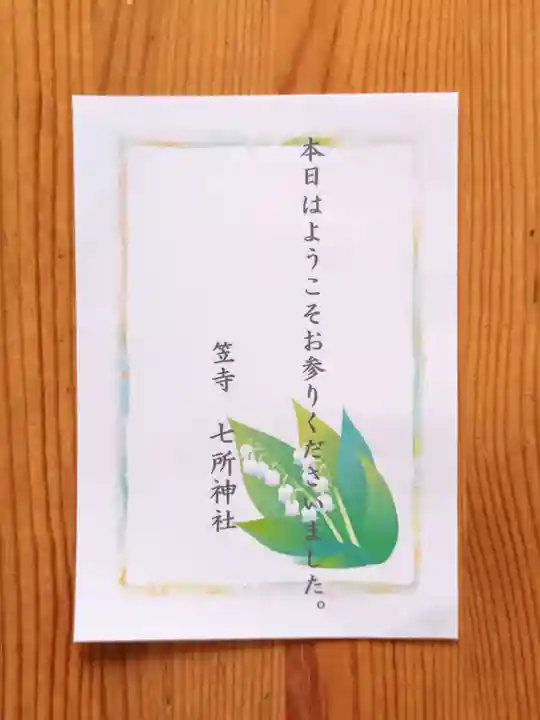 本日はようこそお参りくださいました。
笠寺 七所神社